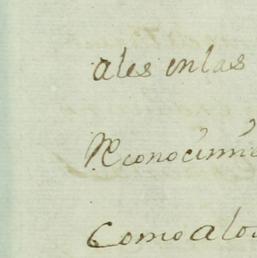 ales en las
Reconocimie
Como alos